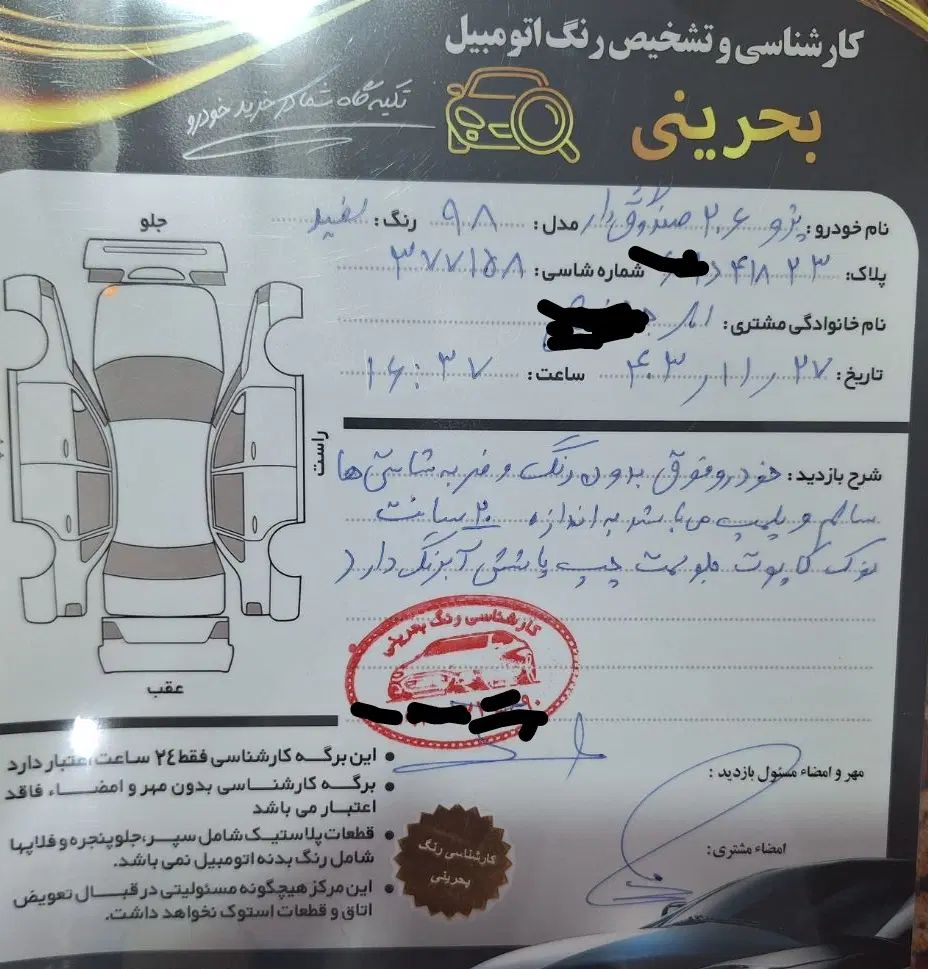 کارشناسی و تشخیص رنگ اتومبیل
بحرینی
تکیه گاه شما در خرید خودرو
نام خودرو: پژو ۲۰۶ صندوق دار مدل: ۹۸ رنگ: سفید
پلاک: ۲۳ ۴۱۸ شماره شاسی: ۳۷۷۱۵۸
نام خانوادگی مشتری:
تاریخ: ۲۷ / ۱۱ / ۴۰۳ ساعت: ۱۶:۳۷
شرح بازدید: خودرو فوق بدون رنگ و ضربه شاسی ها
سالم و پلمپ می باشد به اندازه ۲۰ سانت
نوک کاپوت جلو سمت چپ پاشش آبرنگ دارد
جلو
راست
عقب
کارشناسی رنگ بحرینی
مهر و امضاء مسئول بازدید:
امضاء مشتری:
کارشناسی رنگ
بحرینی
این برگه کارشناسی فقط ۲٤ ساعت اعتبار دارد
برگه کارشناسی بدون مهر و امضاء فاقد
اعتبار می باشد
قطعات پلاستیک شامل سپر، جلوپنجره و فلاپها
شامل رنگ بدنه اتومبیل نمی باشد.
این مرکز هیچگونه مسئولیتی در قبال تعویض
اتاق و قطعات استوک نخواهد داشت.